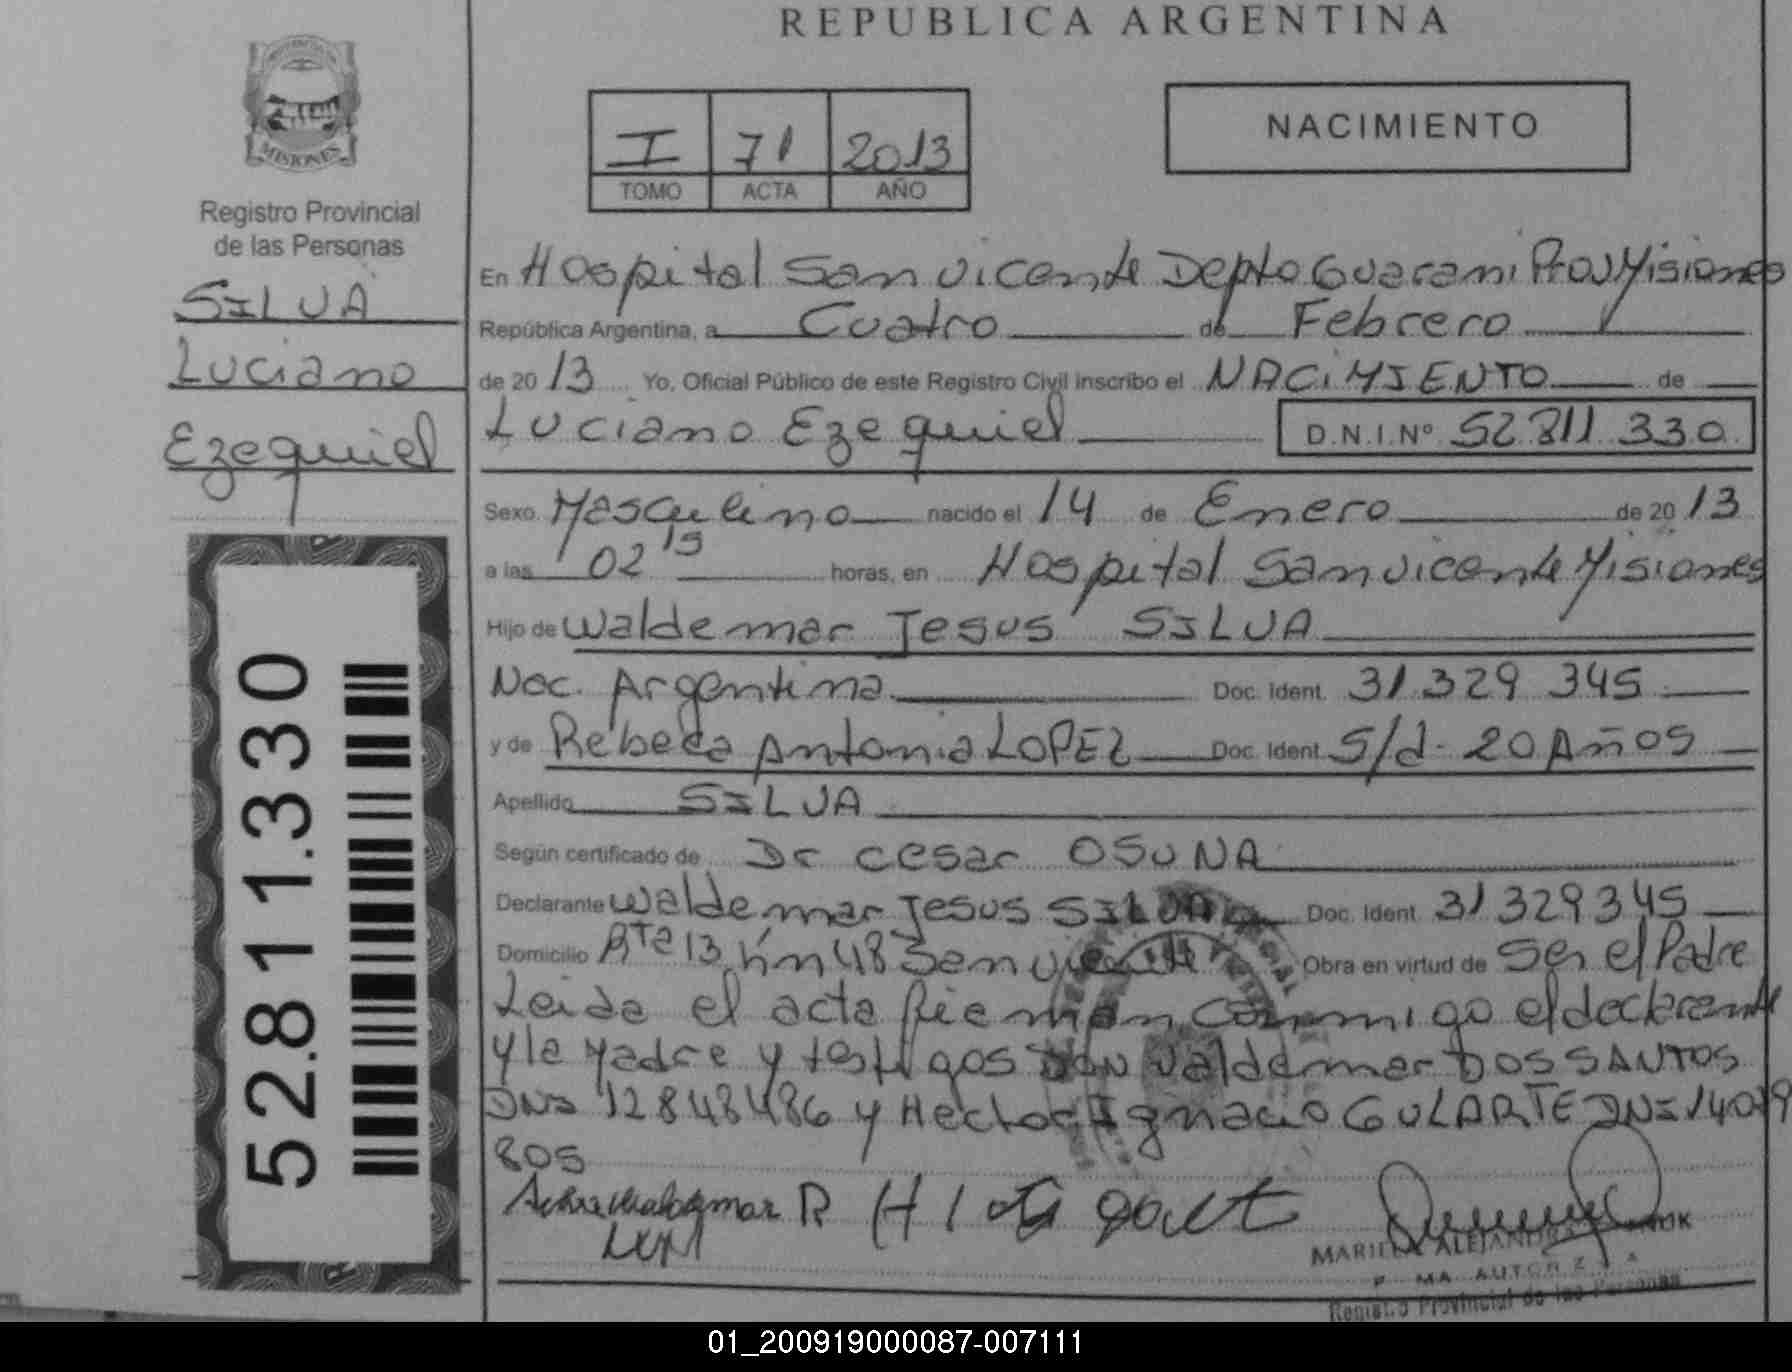 REPUBLICA ARGENTINA
MISIONES
Registro Provincial
de las Personas
SILVA
Luciano
Ezequiel
52.811.330
I 71 2013
TOMO ACTA AÑO
NACIMIENTO
En Hospital San Vicente Depto Guarani Prov Misiones
República Argentina, a Cuatro de Febrero
de 2013 Yo, Oficial Público de este Registro Civil inscribo el NACIMIENTO de
Luciano Ezequiel D.N.I.Nº 52 811 330
Sexo Masculino nacido el 14 de Enero de 2013
a las 02 15 horas, en Hospital San Vicente Misiones
Hijo de Waldemar Jesus SILVA
Nac. Argentina Doc. Ident. 31 329 345
y de Rebeca Antonia LOPEZ Doc. Ident. S/d - 20 Años
Apellido SILVA
Según certificado de Dr Cesar OSUNA
Declarante Waldemar Jesus SILVA Doc. Ident. 31 329345
Domicilio Rta 13 Km 48 San Vicente Obra en virtud de Ser el Padre
Leida el acta firman conmigo el declarante
y la Madre y testigos Don Valdemar DOS SANTOS
DNI 12848486 y Hector Ignacio GULARTE DNI 14029
805
MARIELA ALEJANDRA
Registro Provincial de las Personas
01_200919000087-007111